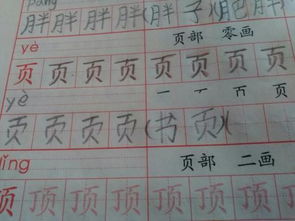 胖胖胖胖(胖子)(肥胖
yè
页部 零画
页页页页页页页页
yè
一 丆 百 页
页页页页(书页)(
dǐng
页部 二画
顶顶顶顶顶顶顶